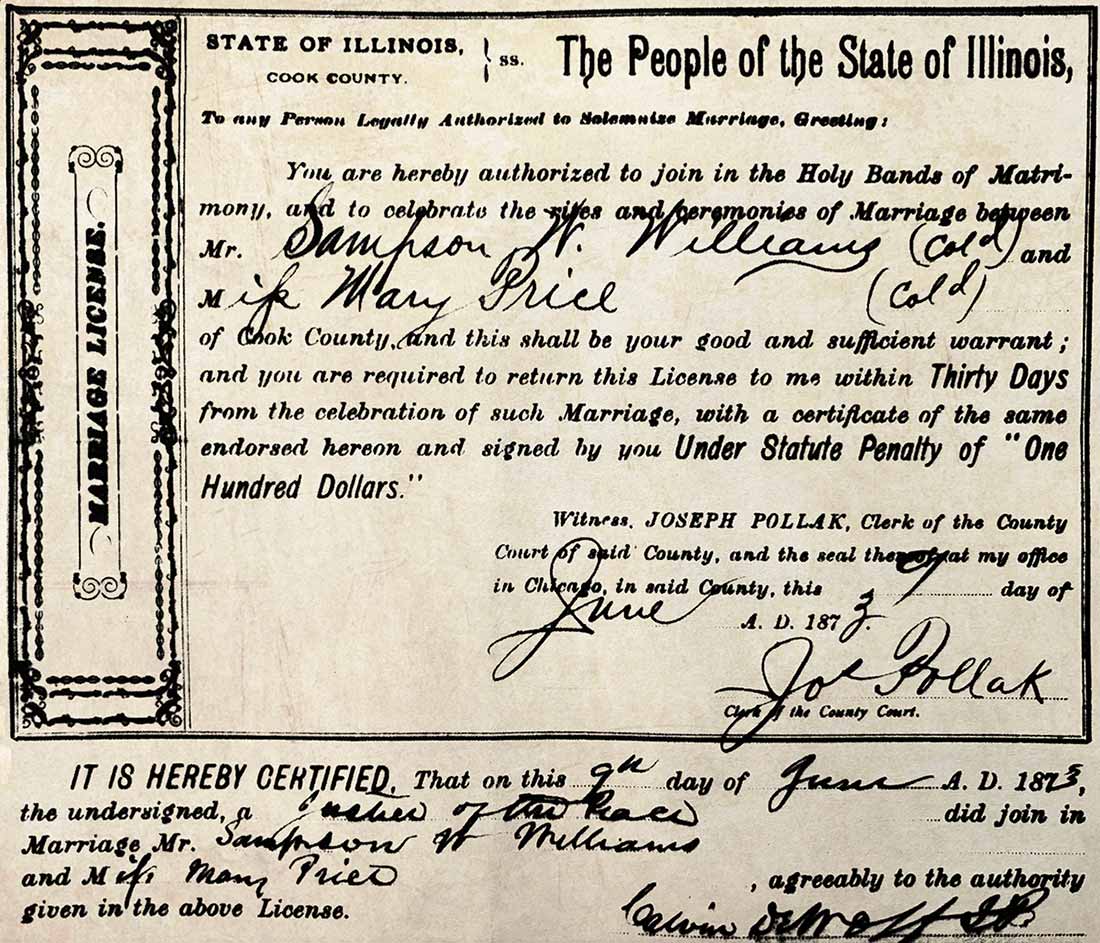 MARRIAGE LICENSE.
STATE OF ILLINOIS,
COOK COUNTY.
ss.
The People of the State of Illinois,
To any Person Legally Authorized to Solemnize Marriage, Greeting:
You are hereby authorized to join in the Holy Bands of Matri-
mony, and to celebrate the rites and ceremonies of Marriage between
Mr. Sampson W. Williams (Cold) and
Miss Mary Price (Cold)
of Cook County, and this shall be your good and sufficient warrant;
and you are required to return this License to me within Thirty Days
from the celebration of such Marriage, with a certificate of the same
endorsed hereon and signed by you Under Statute Penalty of "One
Hundred Dollars."
Witness, JOSEPH POLLAK, Clerk of the County
Court of said County, and the seal thereof at my office
in Chicago, in said County, this 9 day of
June A. D. 1873.
Jos Pollak
Clerk of the County Court.
IT IS HEREBY CERTIFIED, That on this 9th day of June A. D. 1873,
the undersigned, a Justice of the Peace did join in
Marriage Mr. Sampson W Williams
and Miss Mary Price , agreeably to the authority
given in the above License.
Calvin DeWolf J.P.